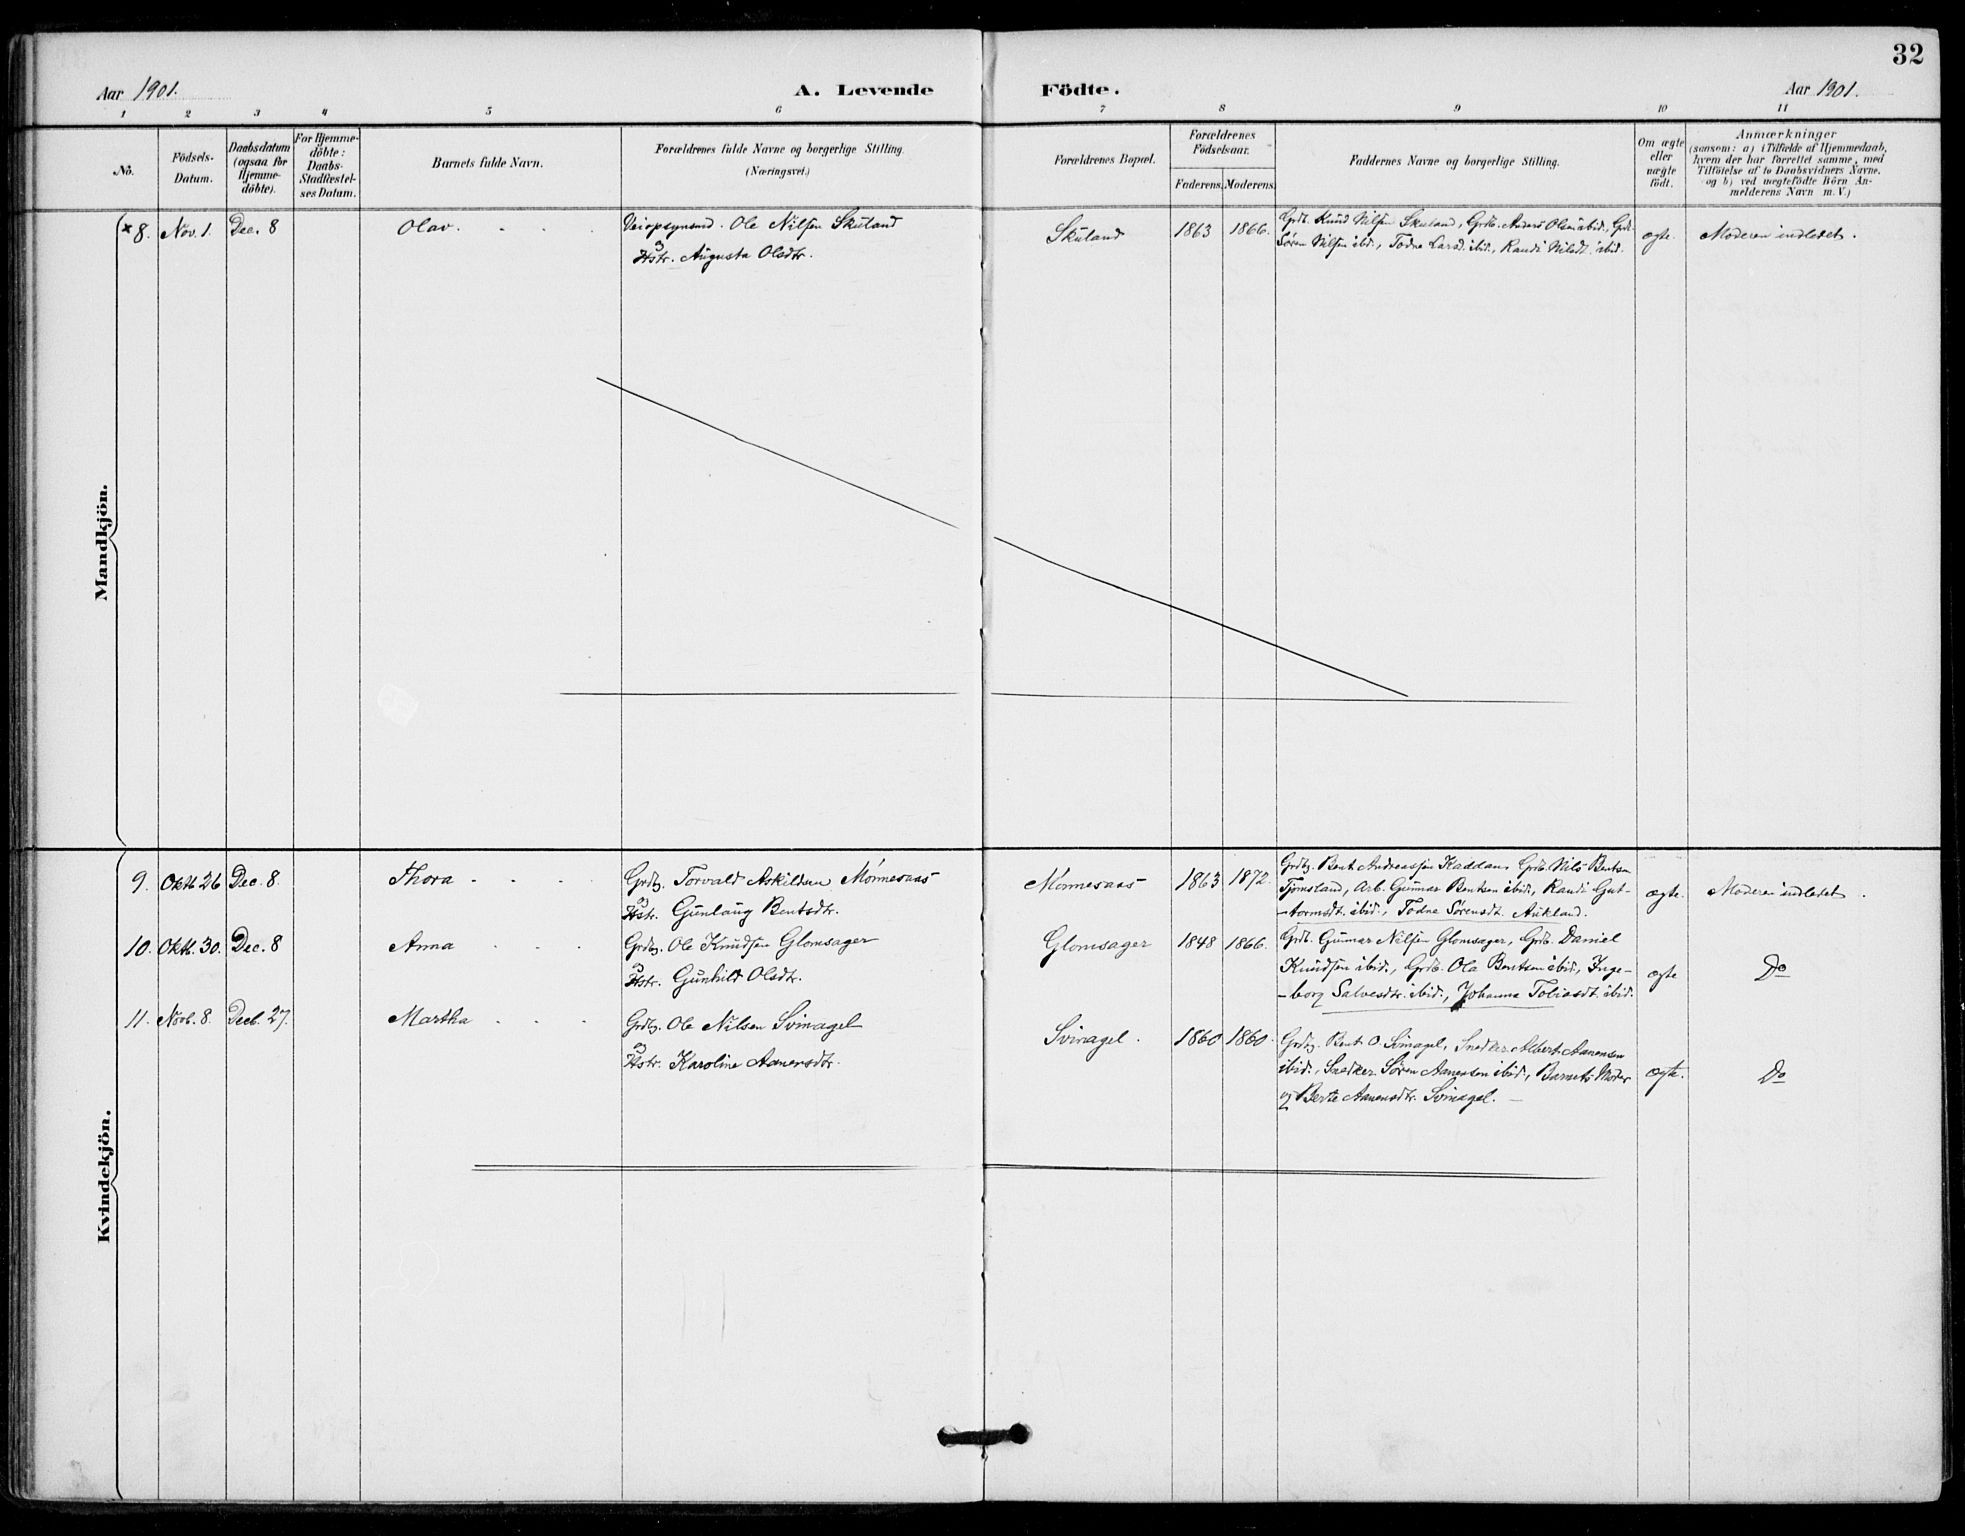 32
Aar 1901. A. Levende Födte. Aar 1901.
1 2 3 4 5 6 7 8 9 10 11
No.
Födsels-
Datum.
Daabsdatum
(ogsaa for
Hjemme-
döbte).
For Hjemme-
döbte:
Daabs-
Stadfæstel-
ses Datum.
Barnets fulde Navn.
Forældrenes fulde Navne og borgerlige Stilling.
(Næringsvei.)
Forældrenes Bopæl.
Forældrenes
Födselsaar.
Faderens. Moderens.
Faddernes Navne og borgerlige Stilling.
Om ægte
eller
uægte
födt.
Anmærkninger
(saasom: a) i Tilfælde af Hjemmedaab,
hvem der har forrettet samme, med
Tilföielse af to Daabsvidners Navne.
og b) ved uægtefödte Börn An-
melderens Navn m. V.)
Mandkjön.
×8. Nov. 1. Dec. 8 Olav. Veiopsynsmd. Ole Nilsen Skuland
Hstr. Augusta Olsdtr.
Skuland 1863 1866.
Grdb. Knud Nilsen Skuland, Grdb. Anders Olsen ibid., Grdb.
Søren Nilsen ibid., Todne Larsd. ibid., Randi Nilsdt. ibid.
ægte. Moderen indledet.
Kvindekjön.
9. Oktb. 26 Dec. 8. Thora Grdbg. Torvald Askildsen Mønnesaas
Hstr. Gunlaug Bentsdtr.
Mønnesaas 1863 1872.
Grdbg. Bent Andreassen Kaddan, Grdb. Nils Bentsen
Tjomsland, Arb. Gunnar Bentsen ibid., Randi Gut-
-tormsdt. ibid., Todne Sørensdt. Aukland.
ægte. Moderen indledet.
10. Oktb. 30. Dec. 8 Anna Grdbg. Ole Knudsen Glomsager
Hstr. Gunhild Olsdtr.
Glomsager 1848 1866.
Grdb. Gunnar Nilsen Glomsager, Grdb. Daniel
Knudsen ibid., Grdb. Ola Bentsen ibid., Inge-
-borg Salvesdtr. ibid., Johanna Tobiasdt. ibid.
ægte Do
11. Novb. 8. Decb. 27. Martha Grdbg. Ole Nilsen Svinagel
Hstr. Karoline Aanensdtr.
Svinagel. 1860 1860.
Grdbg. Bent O. Svinagel, Snedker Albert Aanensen
ibid., Snedker Søren Aanensen ibid., Barnets Moder
og Berte Aanensdtr. Svinagel.
ægte. Do